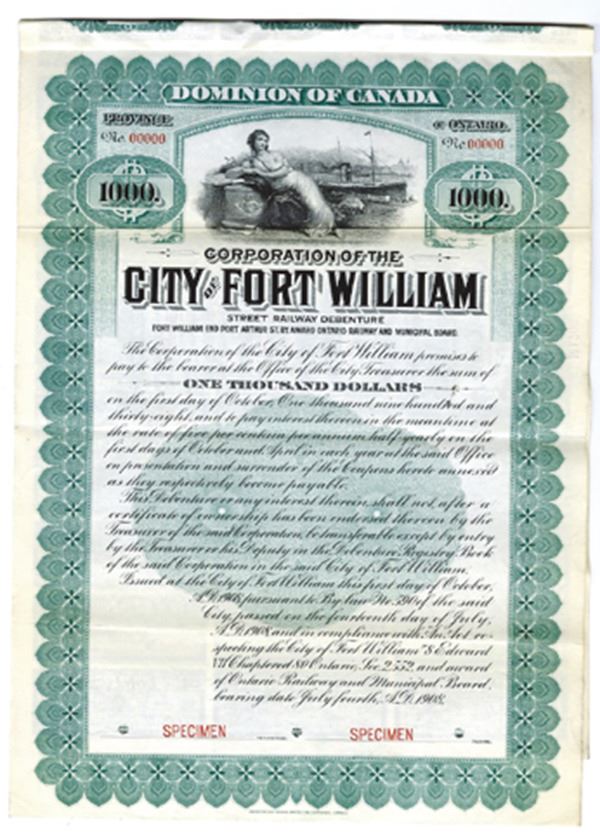 DOMINION OF CANADA
PROVINCE OF ONTARIO.
No. 00000 No. 00000
1000. 1000.
CORPORATION OF THE
CITY OF FORT WILLIAM
STREET RAILWAY DEBENTURE
FORT WILLIAM END PORT ARTHUR ST. RY. AWARD ONTARIO RAILWAY AND MUNICIPAL BOARD.
The Corporation of the City of Fort William promises to
pay to the bearer at the Office of the City Treasurer the sum of
ONE THOUSAND DOLLARS
on the first day of October, One thousand nine hundred and
thirty-eight, and to pay interest thereon in the meantime at
the rate of five per centum per annum half-yearly on the
first days of October and April in each year at the said Office
on presentation and surrender of the Coupons hereto annexed
as they respectively become payable.
This Debenture or any interest therein, shall not, after a
certificate of ownership has been endorsed thereon by the
Treasurer of the said Corporation, be transferable except by entry
by the Treasurer or his Deputy in the Debenture Registry Book
of the said Corporation in the said City of Fort William.
Issued at the City of Fort William this first day of October,
A.D. 1908, pursuant to By-law No. of the said
City, passed on the fourteenth day of July,
A.D. 1908, and in compliance with An Act re-
specting the City of Fort William "8 Edward
VII Chapter 80 Ontario, Sec. 2552, and award
of Ontario Railway and Municipal Board,
bearing date July fourth, A.D. 1908.
SPECIMEN SPECIMEN